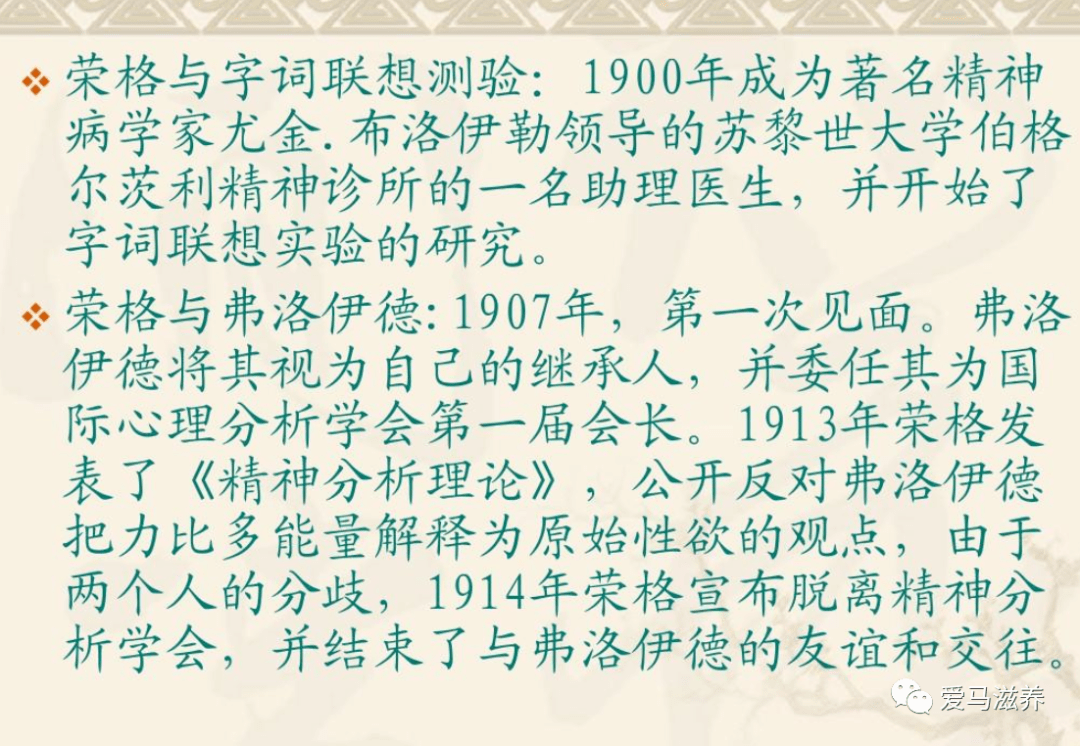 荣格与字词联想测验：1900年成为著名精神
病学家尤金.布洛伊勒领导的苏黎世大学伯格
尔茨利精神诊所的一名助理医生，并开始了
字词联想实验的研究。
荣格与弗洛伊德:1907年，第一次见面。弗洛
伊德将其视为自己的继承人，并委任其为国
际心理分析学会第一届会长。1913年荣格发
表了《精神分析理论》，公开反对弗洛伊德
把力比多能量解释为原始性欲的观点，由于
两个人的分歧，1914年荣格宣布脱离精神分
析学会，并结束了与弗洛伊德的友谊和交往。
爱马滋养